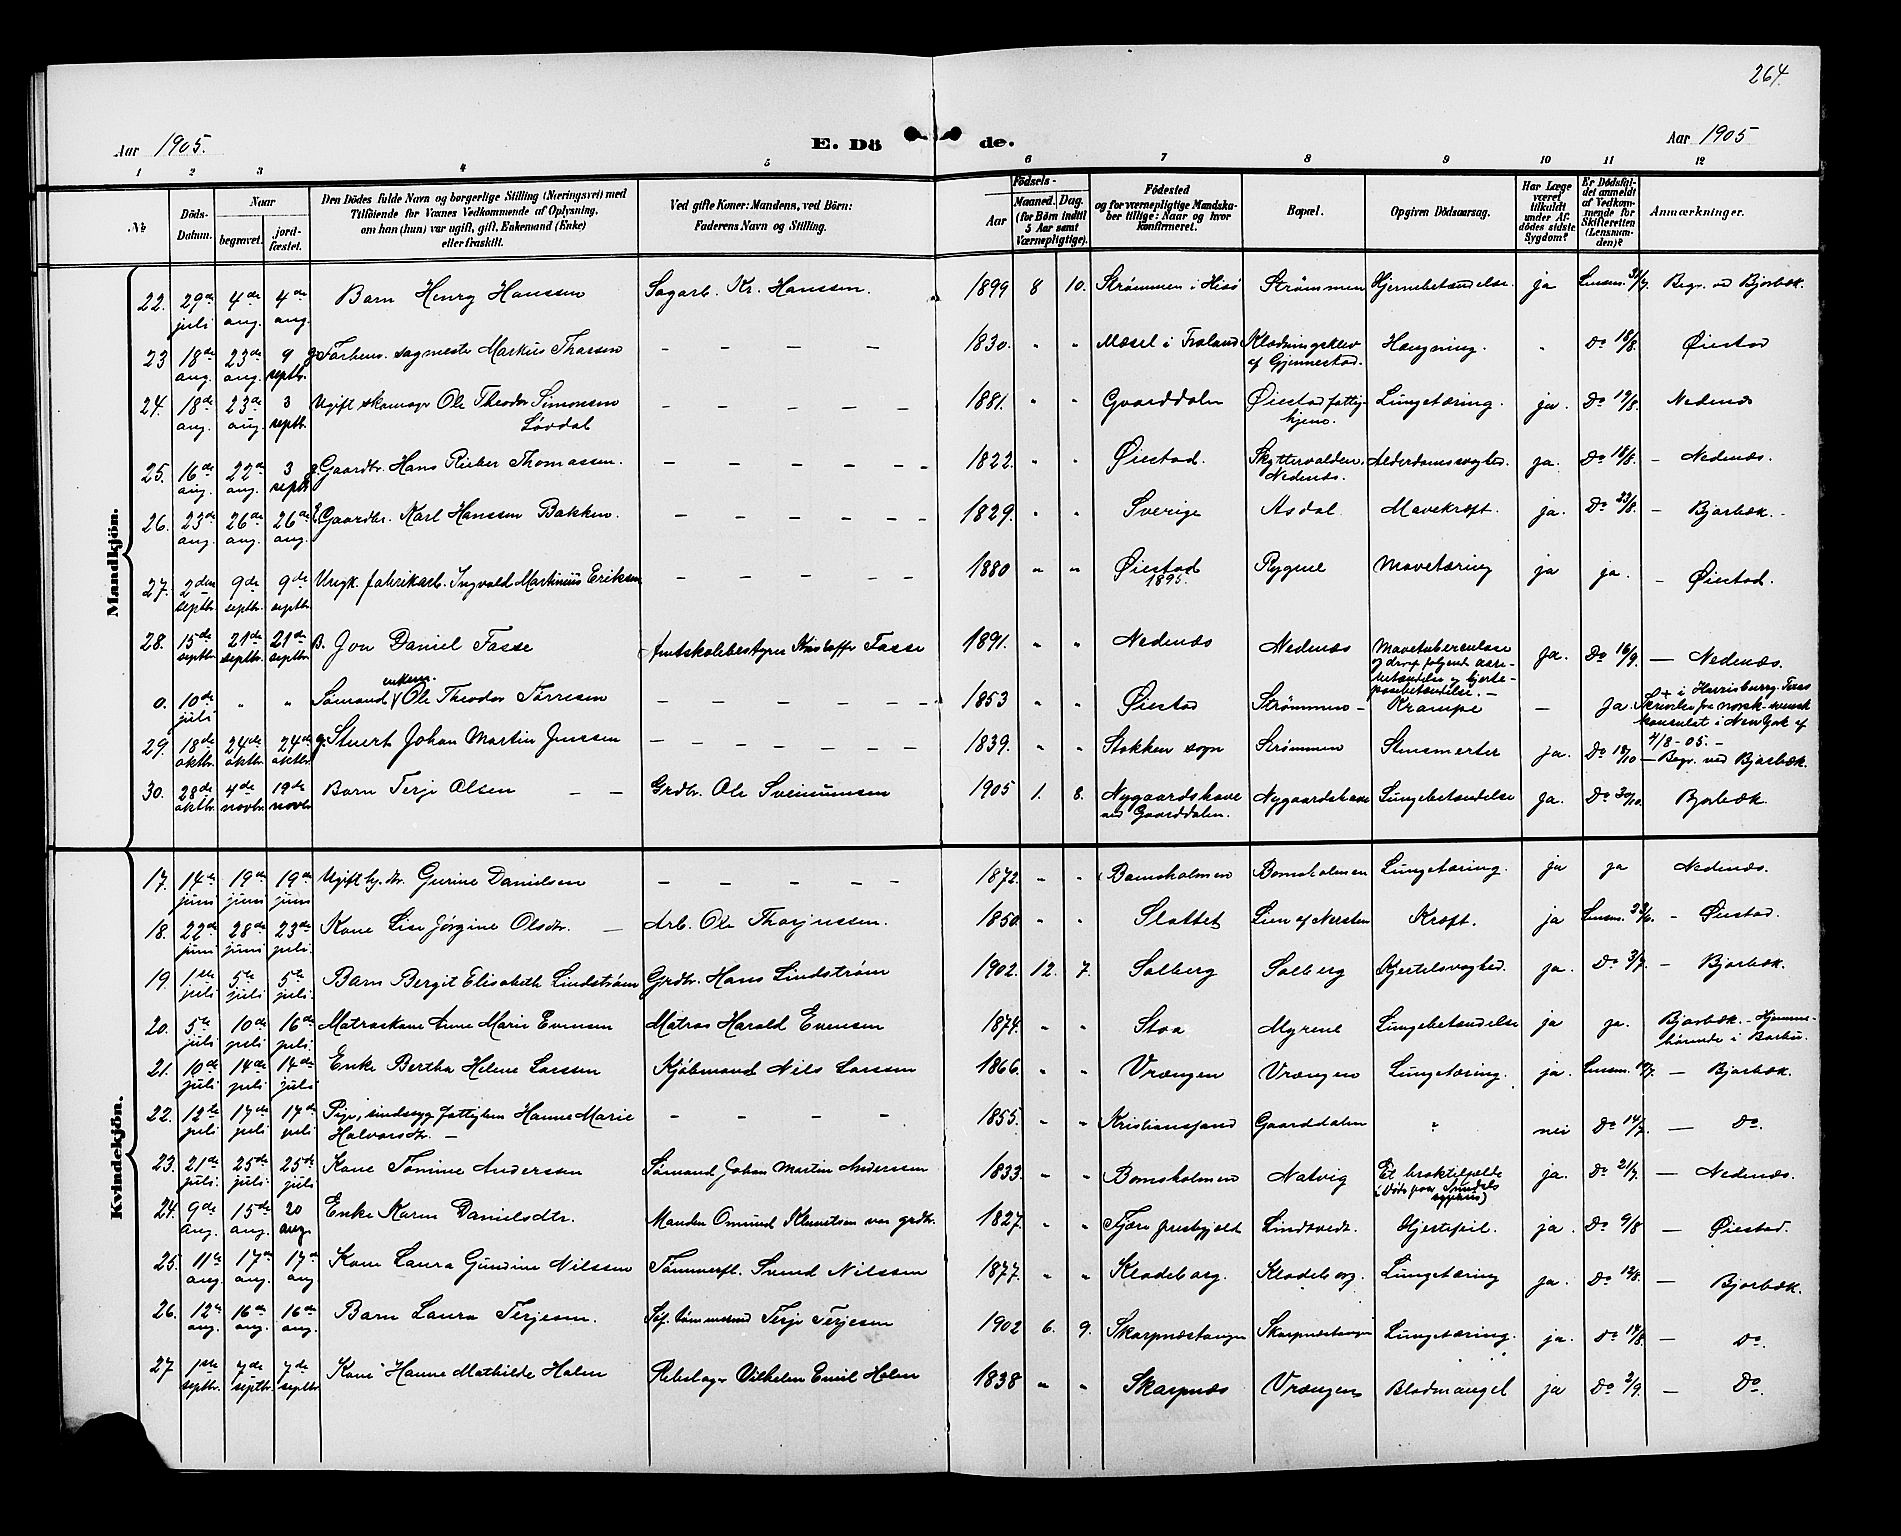 264.
Aar 1905.
E. Dö
de.
Aar 1905
1 2 3 4 5 6 7 8 9 10 11 12
№
Döds-Datum.
Naar
begravet.
jordfæstet.
Den Dödes fulde Navn og borgerlige Stilling (Næringsvei) med
Tilföiende for Voxnes Vedkommende af Oplysning,
om han (hun) var ugift, gift, Enkemand (Enke)
eller fraskilt.
Ved gifte Koner: Mandens, ved Börn:
Faderens Navn og Stilling.
Födsels-
Aar
Maaned. Dag.
(for Börn indtil
5 Aar samt
Værnepligtige).
Födested
og for værnepligtige Mandska-
ber tillige: Naar og hvor
konfirmeret.
Bopæl.
Opgiven Dödsaarsag.
Har Læge
været
tilkaldt
under Af-
dödes sidste
Sygdom?
Er Dödsfal-
det anmeldt
af Vedkom-
mende for
Skifteretten
(Lensman-
den)?
Anmærkninger.
Mandkjön.
22. 29de juli 4de aug. 4de aug. Barn Henry Hanssen Sagarb. Kr. Hanssen. 1899 8 10. Strømmen i Hisø Strømmen Hjernebetændelse. ja Lensm. 31/7. Begr. ved Bjorbæk.
23 18de aug. 23de aug. 9 septbr. g. Forhens. sagmester Markus Thorsen — — — — — 1830. " " Mæsel i Froland Klodningsklev af Gjennestad. Hængning. " Do 18/8. Øiestad
24. 18de aug. 23de aug. 3 septbr. Ugift skomagr Ole Theodor Simonsen Løvdal — — — — — 1881. " " Gaarddalen Øiestad fattighjem. Lungetæring. ja. Do 19/8. Nedenæs
25. 16de aug. 22de aug. 3 septbr. g. Gaardbr. Hans Rieber Thomassen. — — — — — — 1822. " " Øiestad. Skyttervolden. Nedenæs. Alderdomssvaghed. ja. Do 18/8. — Nedenæs.
26. 23de aug. 26de aug. 26de aug. E. Gaardbr. Karl Hanssen Bakken. — — — — — — 1829. " " Sverige Asdal Mavekræft. ja. Do 23/8. — Bjorbæk. -
27. 2den septbr. 9de septbr. 9de septbr. Ungk. fabrikarb. Ingvald Martinius Eriksen — — — — — 1880 " " Øiestad 1895. Rygene Mavetæring ja ja. — Øiestad.
28. 15de septbr. 21de septbr. 21de septbr. B. Jon Daniel Fasse Amtskolebestyrer Kristoffer Fasse 1891. " " Nedenæs Nedenæs Mavetuberculose og deraf følgende aarebetændelse og hjerteposebetændelse. — ja. Do 16/9. — Nedenæs.
0. 10de juli " " Sømand enkem. Ole Theodor Tørresen — — — — — — 1853 " " Øiestad Strømmen — Krampe — Ja. + i Harrisburg. Texas Skrivelse fra norsk-svensk konsulat i New York af 4/8-05. —
29. 18de oktbr. 24de oktbr. 24de oktbr. g. Stuert Johan Martin Jenssen — — — — — — 1839. " " Stokken sogn Strømmen Stensmerter ja. Do 18/10 — Begr. ved Bjorbæk.
30. 28de oktbr. 4de novbr. 19de novbr. Barn Terje Olsen — — Grdbr. Ole Sveinumsen 1905 1. 8. Nygaardshave ved Gaarddalen. Nygaardshave Lungebetændelse Ja. Do 30/10. Bjorbæk.
Kvindekjön.
17. 14de juni 19de juni 19de juni Ugift tj. Gurine Danielsen — — — — — 1872. " " Bomsholmen Bomsholmen Lungetæring. ja ja Nedenæs.
18. 22de juni 28de juni 23de juli. Kone Lise Jørgine Olsdtr. — Arb. Ole Thorjussen. 1850. " " Slottet Lien af Nersten Kræft. ja Lensm. 23/6. — Øiestad.
19. 1ste juli 5te juli 5te juli. Barn Bergit Elisabeth Lindstrøm Grdbr. Hans Lindstrøm 1902. 12. 7. Solberg Solberg Kjertelsvaghed. ja. Do 3/7. — Bjorbæk.
20. 5te juli 10de juli 16de juli. Matroskone Anne Marie Evensen Matros Harald Evensen 1874. " " Stoa Myrene Lungebetændelse ja ja. Bjorbæk. — Hjemmehørende i Barbu.
21. 10de juli 14de juli 14de juli Enke Bertha Helene Larsen Kjøbmand Nils Larsen 1866. " " Vrængen Vrængen Lungetæring. ja. Lensm. 10/7. — Bjorbæk.
22. 12te juli 17de juli 17de juli Pige, sindssyg fattiglem Hanne Marie Halvorsdtr. — — — — — 1855. " " Kristianssand Gaarddalen " nei Do 14/7. — Do.
23. 21de juli. 25de juli. 25de juli Kone Tomine Andersen Sømand Johan Martin Anderssen 1833 " " Bomsholmen Natvig Et braktilfælde (Død paa Arendals sygehus) ja. Do 21/7. — Nedenæs.
24. 9de aug. 15de aug. 20 aug. Enke Karen Danielsdtr. Manden Omund Klemetsen var grdbr. 1827. " " Fjære presgjeld Lindtvedt. Hjertefeil. ja. Do 9/8 — Øiestad.
25. 11te aug. 17de aug. 17de aug Kone Laura Gundine Nilssen Tømmerfl. Svend Nilssen 1877. " " Klodeborg. Klodeborg. Lungetæring ja. Do 12/8. — Bjorbæk.
26. 12te aug. 16de aug. 16de aug. Barn Laura Terjesen. Terje Terjesen 1902 6. 9. Skarpnæstangen Skarpnæstangen Lungetæring. ja. Do 14/8. — Do.
27 1ste septbr. 7de septbr. 7de septbr. Kone Hanne Mathilde Holm Rebslager Vilhelm Emil Holm 1838 " " Skarpnæs Vrængen Blodmangel ja Do 2/9. — Do.